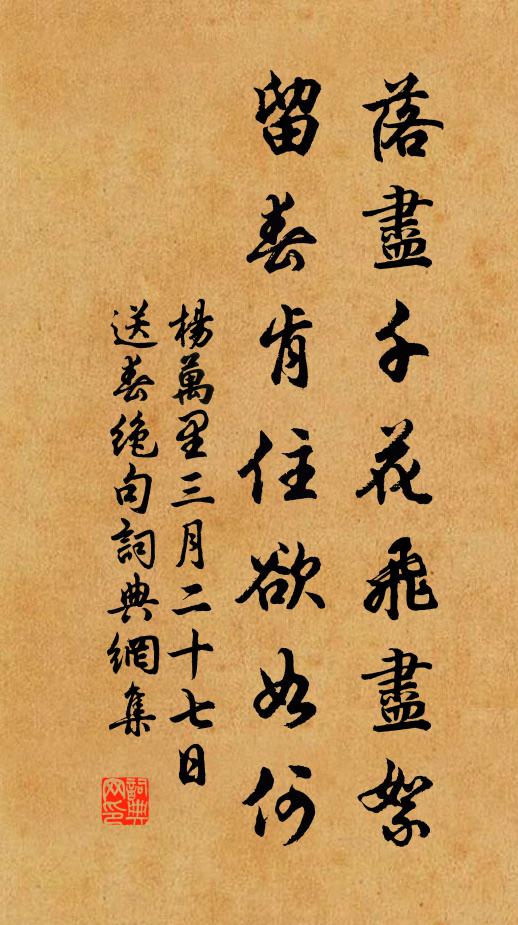 落盡千花飛盡絮
留春肯住欲如何
楊萬里三月二十七日
送春絶句詞典網集
詞典
网印